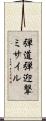 弾道弾迎撃
ミサイル